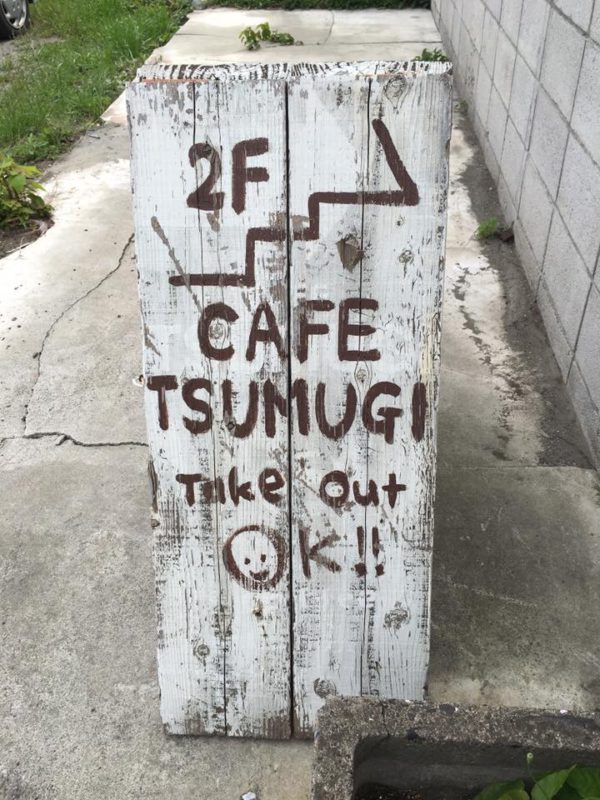 2F
CAFE
TSUMUGI
Take Out
OK!!